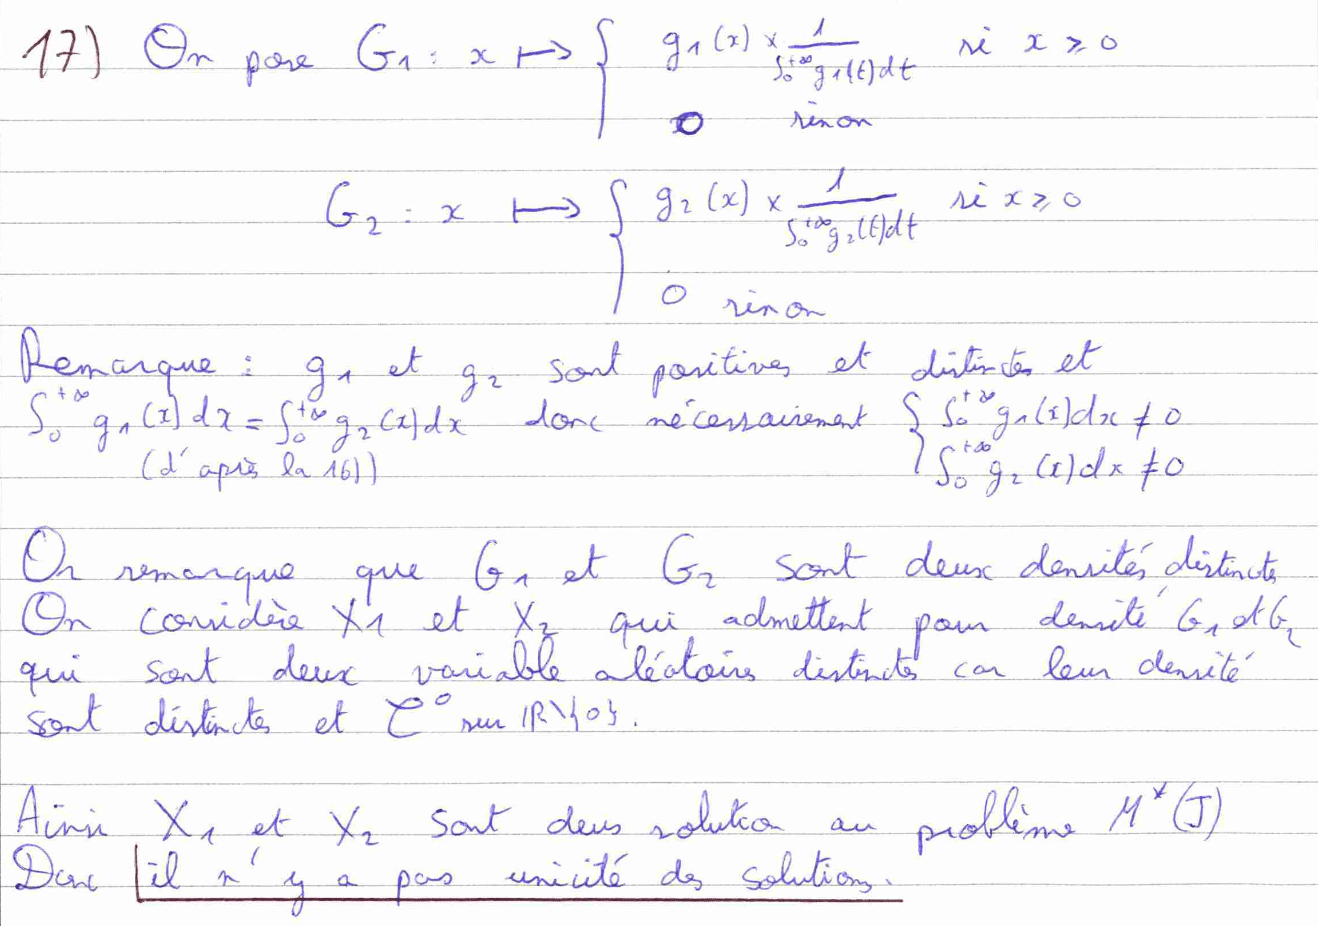 17) On pose G₁ : x ↦ { g₁(x) × 1/∫₀^{+∞} g₁(t)dt si x ≥ 0
0 sinon
G₂ : x ↦ { g₂(x) × 1/∫₀^{+∞} g₂(t)dt si x ≥ 0
0 sinon
Remarque : g₁ et g₂ sont positives et distinctes et
∫₀^{+∞} g₁(x)dx = ∫₀^{+∞} g₂(x)dx donc nécessairement { ∫₀^{+∞} g₁(x)dx ≠ 0
(d'après la 16)) ∫₀^{+∞} g₂(x)dx ≠ 0
On remarque que G₁ et G₂ sont deux densités distinctes
On considère X₁ et X₂ qui admettent pour densité G₁ et G₂
qui sont deux variable aléatoires distinctes car leur densité
sont distinctes et C⁰ sur ℝ\{0}.
Ainsi X₁ et X₂ sont deux solution au problème M*(J)
Donc il n'y a pas unicité des solutions.